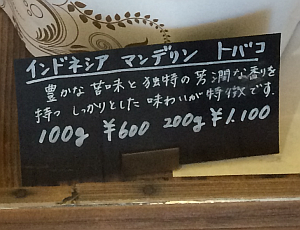 インドネシア マンデリン トバコ
豊かな苦味と独特の芳潤な香りを
持つ しっかりとした味わいが特徴です.
100g ¥600 200g ¥1.100